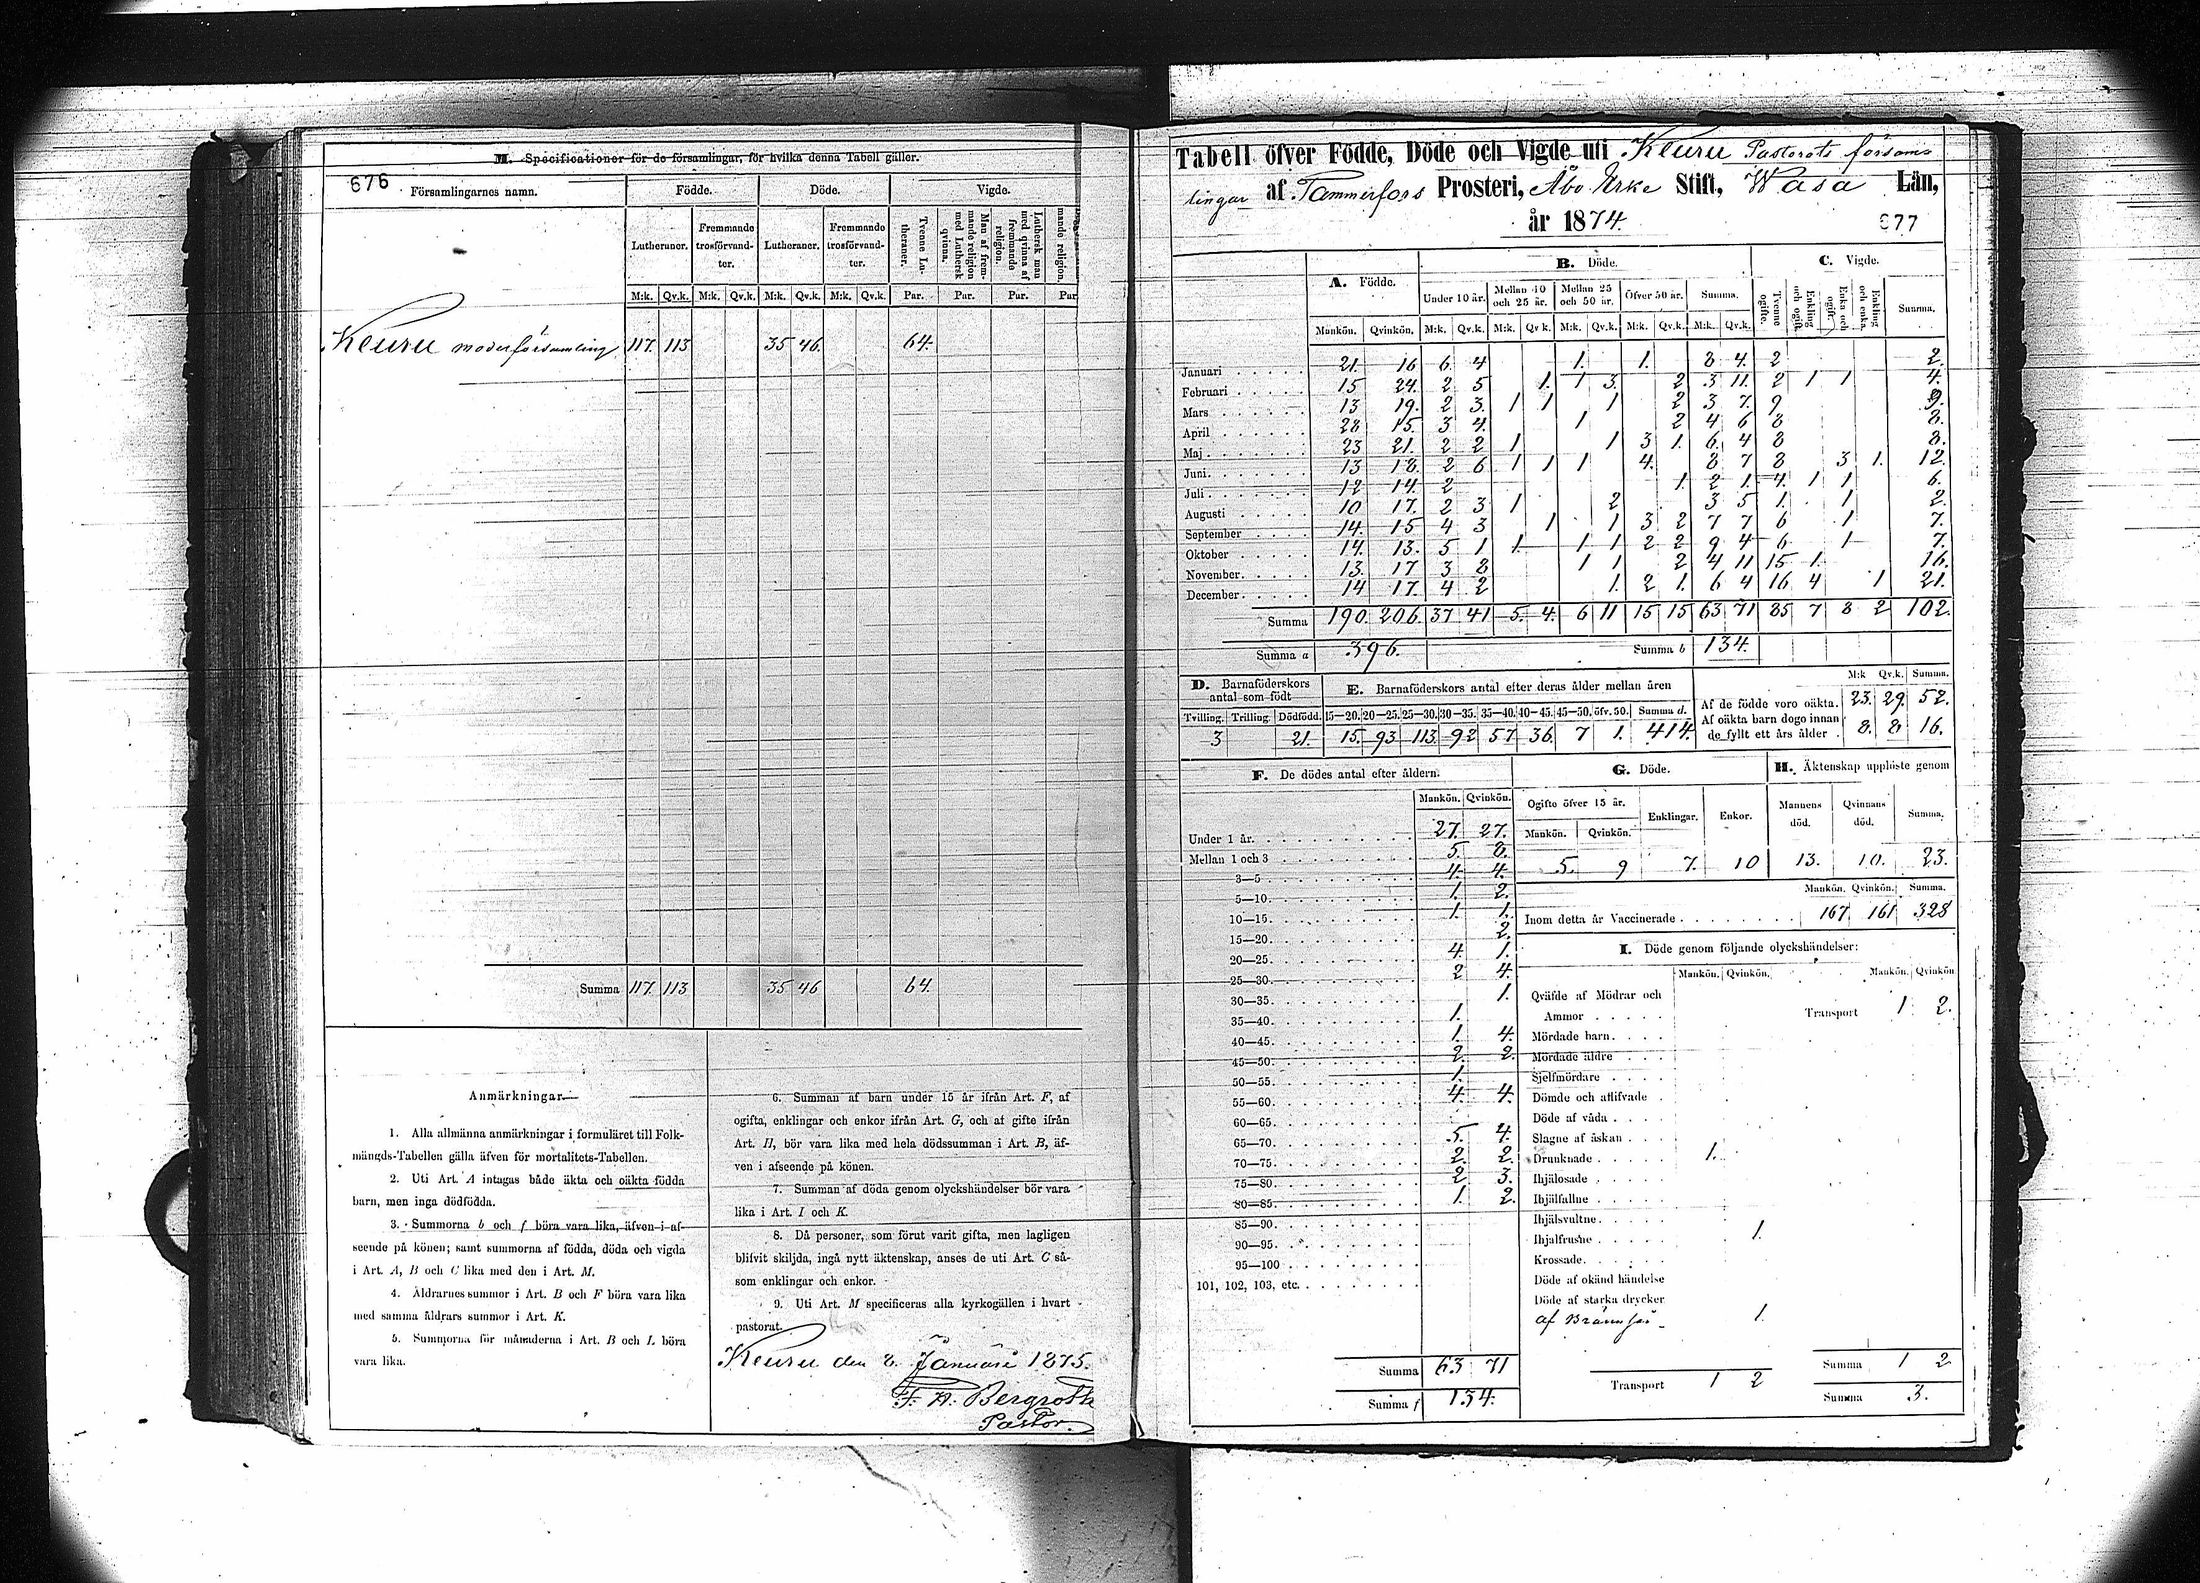 M. Specificationer för de församlingar, för hvilka denna Tabell gäller.
676
Församlingarnes namn. Födde. Döde. Vigde.
Lutheraner. Fremmande trosförvandter. Lutheraner. Fremmande trosförvandter. Tvenne Lutheraner. Man af fremmande religion med Luthersk qvinna. Luthersk man med qvinna af fremmande religion. mande religion.
M:k. Qv.k. M:k. Qv.k. M:k. Qv.k. M:k. Qv.k. Par. Par. Par. Par
Keuru moderförsamling 117. 113 35 46. 64.
Summa 117. 113 35 46 64.
Anmärkningar.
1. Alla allmänna anmärkningar i formuläret till Folk-
mängds-Tabellen gälla äfven för mortalitets-Tabellen.
2. Uti Art. A intagas både äkta och oäkta födda
barn, men inga dödfödda.
3. Summorna b och f böra vara lika, äfven i af-
seende på könen; samt summorna af födda, döda och vigda
i Art. A, B och C lika med den i Art. M.
4. Åldrarnes summor i Art. B och F böra vara lika
med samma åldrars summor i Art. K.
5. Summorna för månaderna i Art. B och L böra
vara lika.
6. Summan af barn under 15 år ifrån Art. F, af
ogifta, enklingar och enkor ifrån Art. G, och af gifte ifrån
Art. H, bör vara lika med hela dödssumman i Art. B, äf-
ven i afseende på könen.
7. Summan af döda genom olyckshändelser bör vara
lika i Art. I och K.
8. Då personer, som förut varit gifta, men lagligen
blifvit skiljda, ingå nytt äktenskap, anses de uti Art. C så-
som enklingar och enkor.
9. Uti Art. M specificeras alla kyrkogällen i hvart
pastorat.
Keuru den 8. Januari 1875.
F. A. Bergroth
Pastor.
Tabell öfver Födde, Döde och Vigde uti Keuru Pastorats försam-
lingar af Tammerfors Prosteri, Åbo Erke Stift, Wasa Län,
år 1874.
677
A. Födde. B. Döde. C. Vigde.
Under 10 år. Mellan 10 och 25 år. Mellan 25 och 50 år. Öfver 50 år. Summa. Tvenne ogifte. Enkling och ogift. Enka och ogift. Enkling och enka. Summa.
Mankön. Qvinkön. M:k. Qv.k. M:k. Qv k. M:k. Qv.k. M:k. Qv.k. M:k. Qv.k.
Januari 21. 16 6. 4 1. 1. 8 4. 2 2.
Februari 15 24. 2 5 1. 1 3. 2 3 11. 2 1 1 4.
Mars 13 19. 2 3. 1 1 1 2 3 7. 9 9.
April 28 15. 3 4. 1 2 4 6 8 8.
Maj 23 21. 2 2 1 1 3 1. 6. 4 8 8.
Juni 13 18. 2 6 1 1 1 4. 8 7 8 3 1. 12.
Juli 12 14. 2 1. 2 1. 4. 1 1 6.
Augusti 10 17. 2 3 1 2 3 5 1. 1 2.
September 14. 15 4 3 1 1 3 2 7 7 6 1 7.
Oktober 14. 13. 5 1 1. 1 1 2 2 9 4 6 1 7.
November 13. 17 3 8 1 1 2 4 11 15 1. 16.
December 14 17. 4 2 1. 2 1. 6 4 16 4 1 21.
Summa 190. 206. 37 41 5. 4. 6 11 15 15 63 71 85 7 8 2 102.
Summa a 396. Summa b 134.
D. Barnaföderskors antal som födt E. Barnaföderskors antal efter deras ålder mellan åren M:k Qv.k. Summa.
Tvilling. Trilling. Dödfödd. 15—20. 20—25. 25—30. 30—35. 35—40. 40—45. 45—50. öfv. 50. Summa d.
3 21. 15. 93 113. 92 57 36. 7 1. 414.
Af de födde voro oäkta. 23. 29. 52.
Af oäkta barn dogo innan
de fyllt ett års ålder. 8. 8 16.
F. De dödes antal efter åldern.
Mankön. Qvinkön.
Under 1 år. 27. 27.
Mellan 1 och 3 5. 8.
3—5 4. 4.
5—10. 1. 2.
10—15. 1. 1.
15—20. 2.
20—25. 4. 1.
25—30. 2 4.
30—35. 1.
35—40. 1.
40—45. 1. 4.
45—50. 2. 2.
50—55. 1.
55—60. 4. 4.
60—65.
65—70. 5. 4.
70—75. 2. 2.
75—80. 2 3.
80—85. 1. 2.
85—90.
90—95.
95—100
101, 102, 103, etc.
Summa 63 71
Summa f 134.
G. Döde. H. Äktenskap upplöste genom
Ogifte öfver 15 år. Enklingar. Enkor. Mannens död. Qvinnans död. Summa.
Mankön. Qvinkön.
5. 9 7. 10 13. 10. 23.
Mankön. Qvinkön. Summa.
Inom detta år Vaccinerade 167 161 328
I. Döde genom följande olyckshändelser:
Mankön. Qvinkön. Mankön. Qvinkön
Qväfde af Mödrar och
Ammor Transport 1 2.
Mördade barn.
Mördade äldre
Sjelfmördare
Dömde och aflifvade
Döde af våda
Slagne af åskan
Drunknade 1.
Ihjälosade
Ihjälfallne
Ihjälsvultne.
Ihjälfrusne 1.
Krossade.
Döde af okänd händelse
Döde af starka drycker
af 1.
Transport 1 2
Summa 1 2
Summa 3.